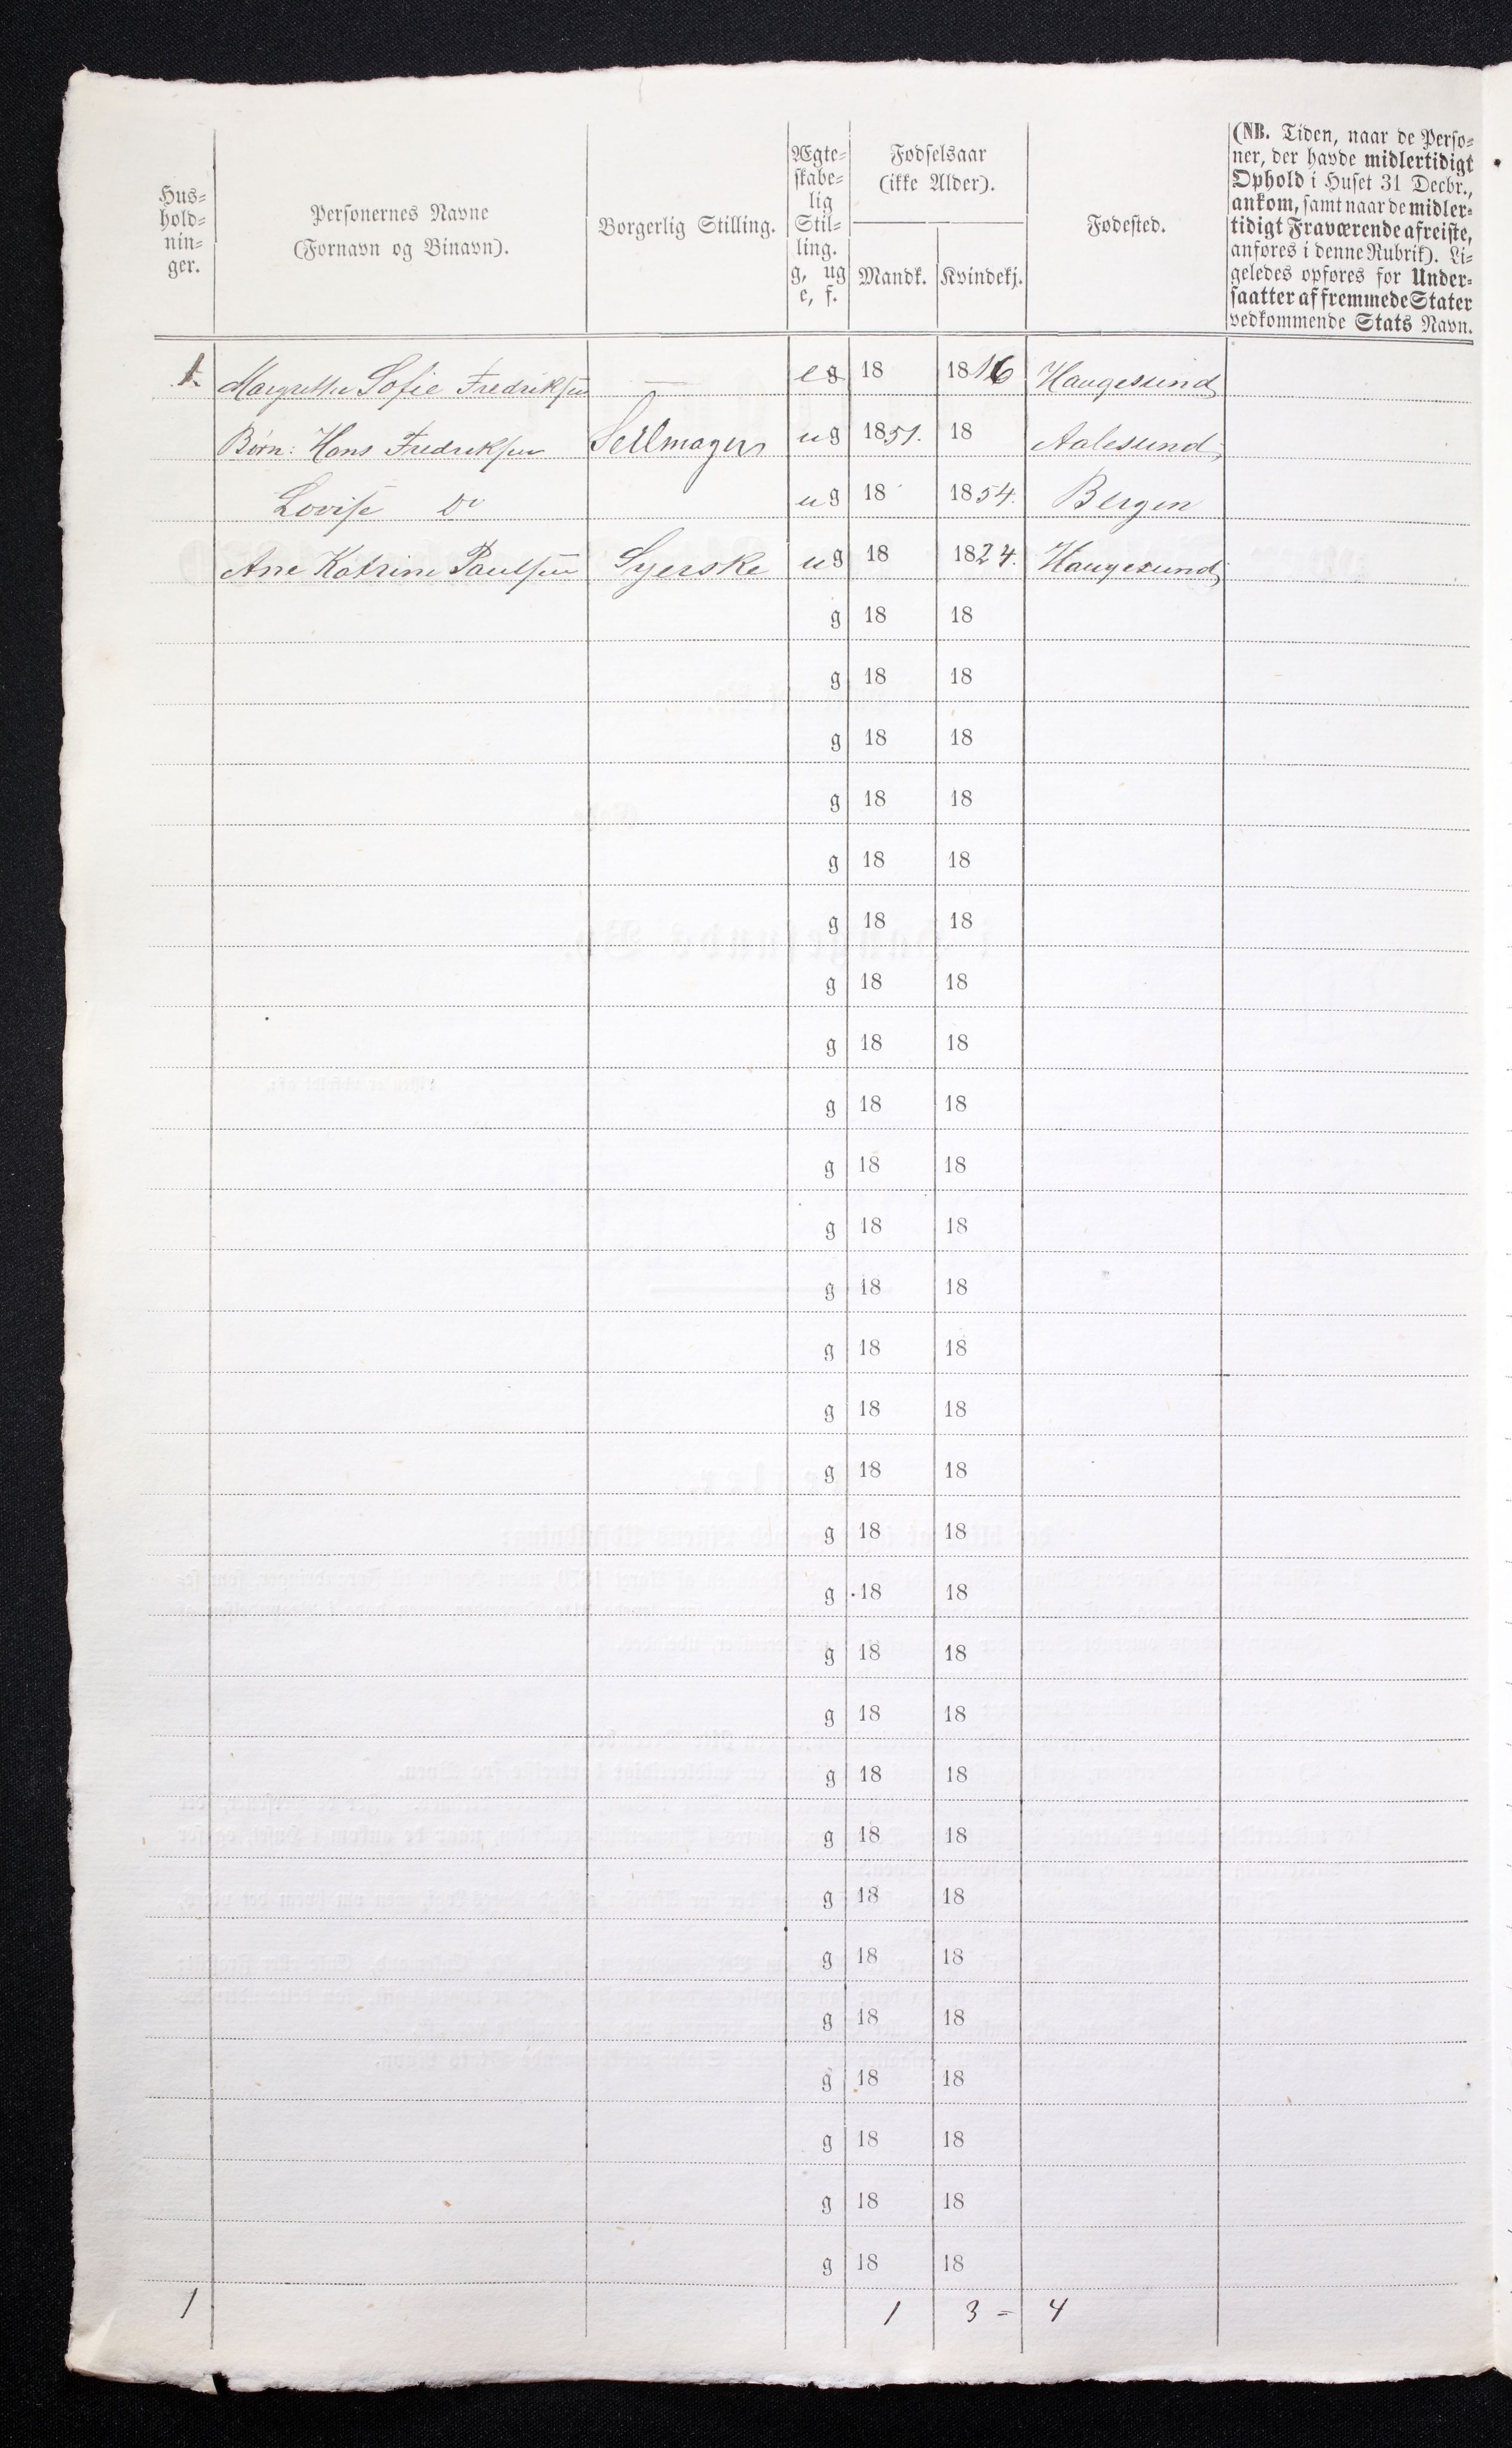 Hus-
hold-
nin-
ger.
Personernes Navne
(Fornavn og Binavn).
Borgerlig Stilling.
Ægte-
skabe-
lig
Stil-
ling.
g, ug
e, f.
Fødselsaar
(ikke Alder).
Mandk. Kvindekj.
Fødested.
(NB. Tiden, naar de Perso-
ner, der havde midlertidigt
Ophold i Huset 31 Decbr.,
ankom, samt naar de midler-
tidigt Fraværende afreiste,
anføres i denne Rubrik). Li-
geledes opføres for Under-
saatter af fremmede Stater
vedkommende Stats Navn.
1. Margrethe Sofie Fredriksen — e g 18 1816 Haugesund
Børn: Hans Fredriksen Seilmager ug 1851. 18 Aalesund
Lovise Do ug 18 1854. Bergen
Ane Katrine Paulsen Syerske ug 18 1824. Haugesund
g 18 18
g 18 18
g 18 18
g 18 18
g 18 18
g 18 18
g 18 18
g 18 18
g 18 18
g 18 18
g 18 18
g 18 18
g 18 18
g 18 18
g 18 18
g 18 18
g 18 18
g 18 18
g 18 18
g 18 18
g 18 18
g 18 18
g 18 18
g 18 18
g 18 18
g 18 18
g 18 18
g 18 18
1 1 3 = 4